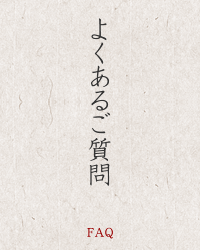 よくあるご質問
FAQ